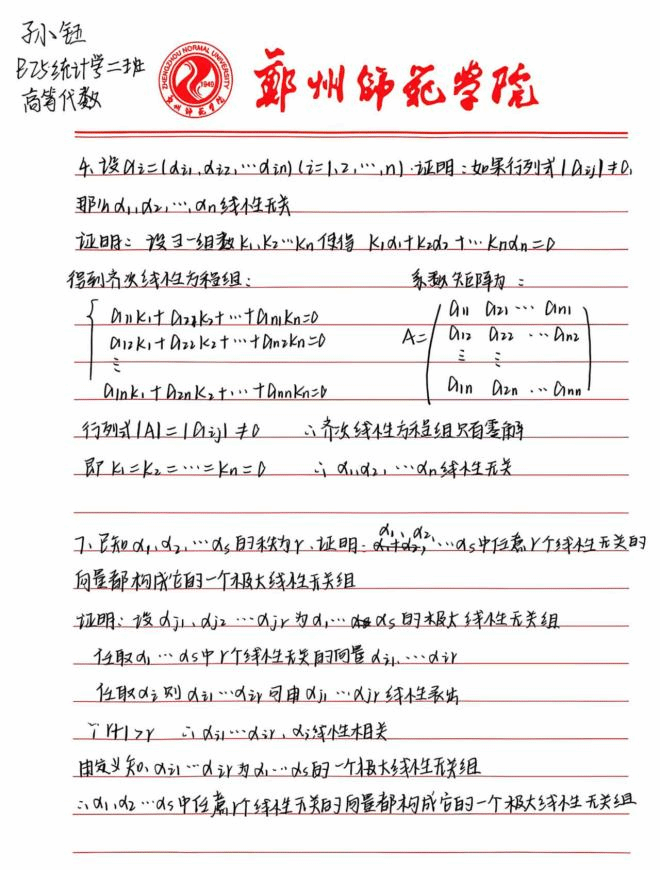 孙小钰
B25统计学二班
高等代数
ZHENGZHOU NORMAL UNIVERSITY
1949
郑州师范学院
郑州师范学院
4、设αi=(αi1,αi2,…αin)(i=1,2,…,n).证明:如果行列式|aij|≠0,
那么α1,α2,…,αn线性无关
证明:设∃一组数k1,k2…kn使得 k1α1+k2α2+…knαn=0
得到齐次线性方程组: 系数矩阵为:
a11k1+a21k2+…+an1kn=0
a12k1+a22k2+…+an2kn=0
⋮
a1nk1+a2nk2+…+annkn=0
A=
a11 a21 … an1
a12 a22 … an2
⋮ ⋮
a1n a2n … ann
行列式|A|=|aij|≠0 ∴齐次线性方程组只有零解
即k1=k2=…=kn=0 ∴α1,α2,…αn线性无关
7、已知α1,α2,…αs的秩为r.证明:α1,α2,…αs中任意r个线性无关的
向量都构成它的一个极大线性无关组
证明:设αj1,αj2…αjr为α1…αs的极大线性无关组
任取α1…αs中r个线性无关的向量αi1,…αir
任取αi则αi1…αir可由αj1…αjr线性表出
∵r+1>r ∴αi1…αir,αi线性相关
由定义知,αi1…αir为α1…αs的一个极大线性无关组
∴α1,α2…αs中任意r个线性无关的向量都构成它的一个极大线性无关组